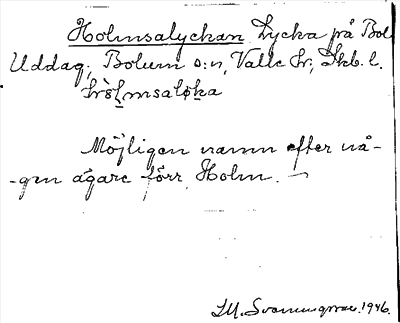 Holmsalyckan Lycka på Bol
Uddag, Bolum s:n, Valle hr, Skb. l.
Möjligen namn efter nå-
-gen ägare förr, Holm. —
I.M. Svenningsson 1946.